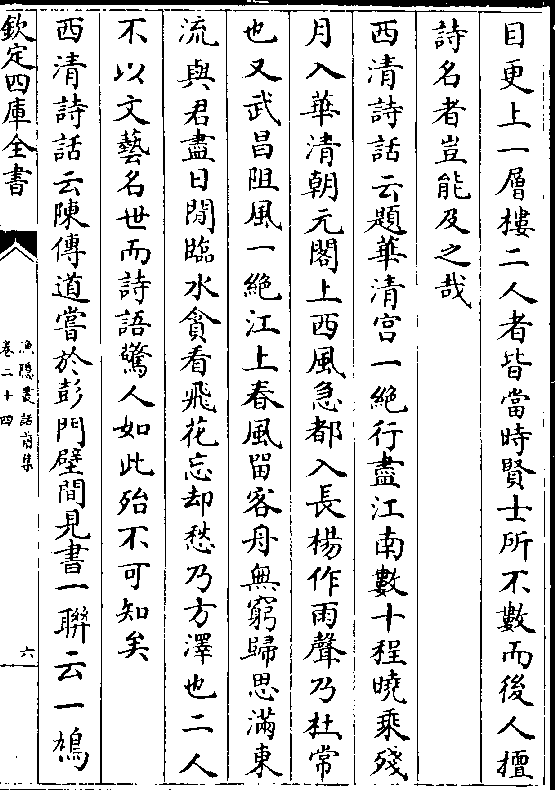 目更上一層樓二人者皆當時賢士所不數而後人擅
詩名者豈能及之哉
西清詩話云題華清宮一絶行盡江南數十程曉乘殘
月入華清朝元閣上西風急都入長楊作雨聲乃杜常
也又武昌阻風一絶江上春風留客舟無窮歸思滿東
流與君盡日閒臨水貪看飛花忘却愁乃方澤也二人
不以文藝名世而詩語驚人如此殆不可知矣
西清詩話云陳傳道嘗於彭門壁間見書一聯云一鳩
欽定四庫全書
漁隱叢話前集
卷二十四
六